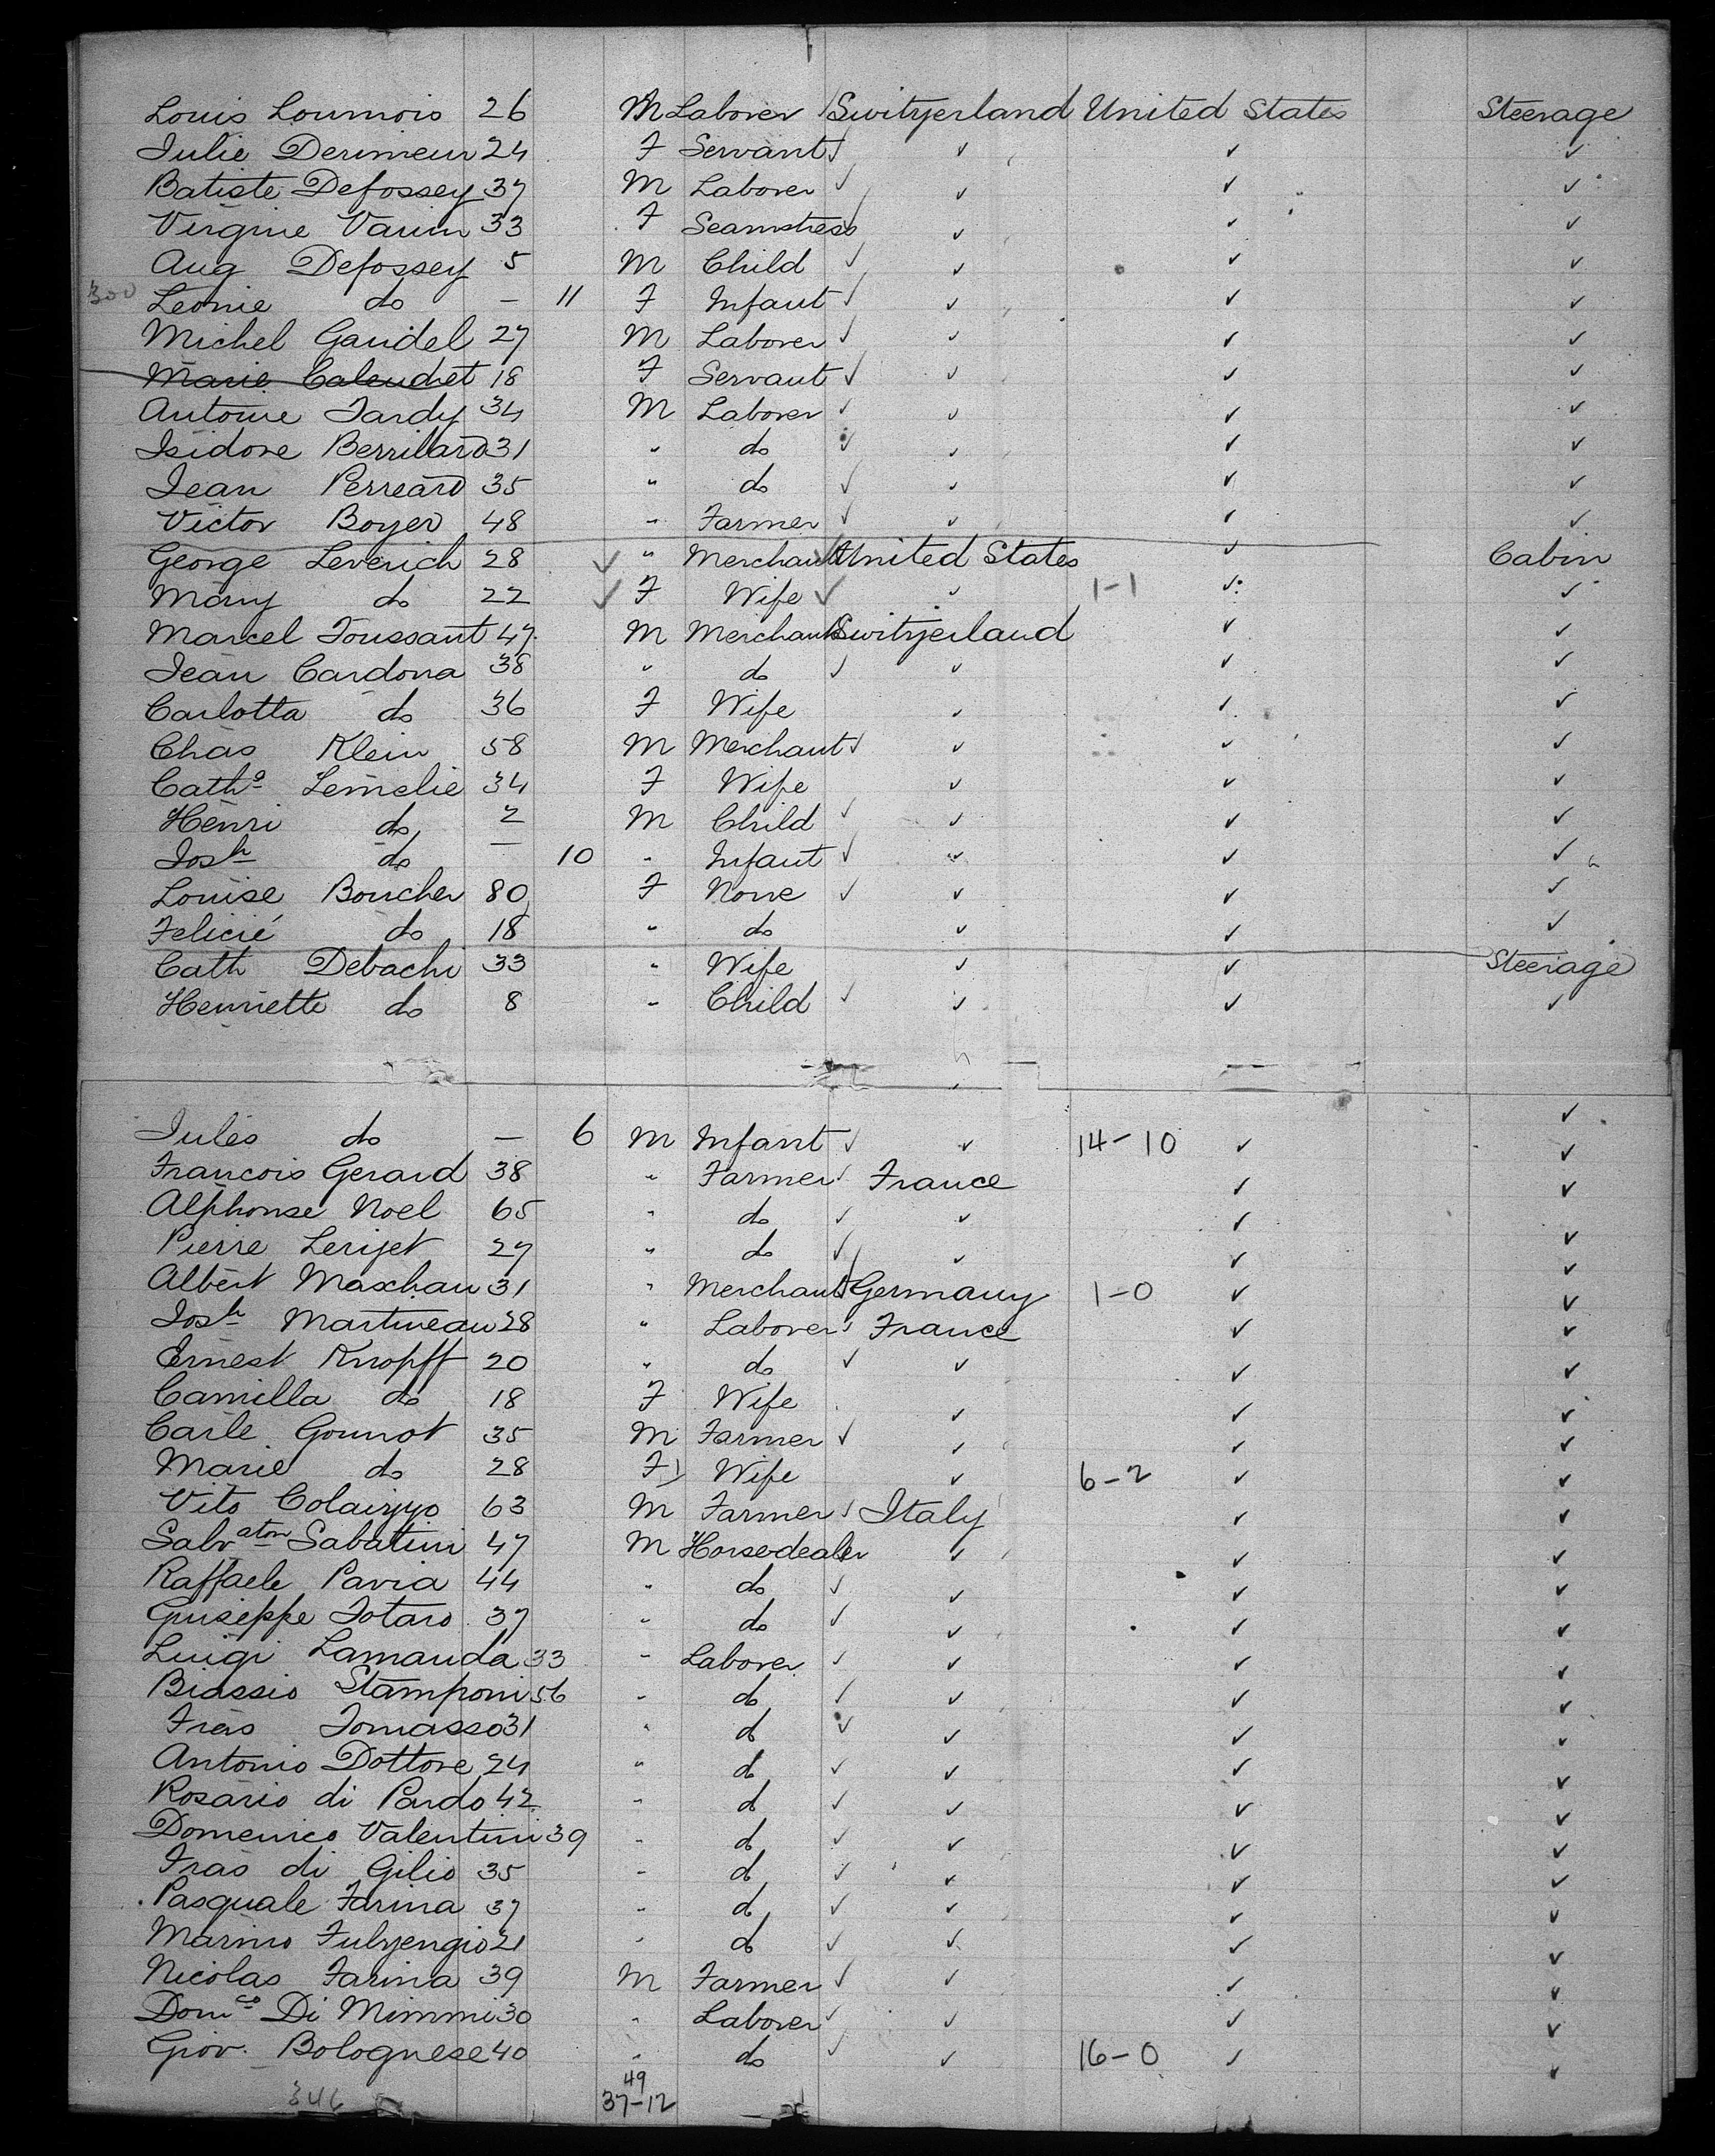 Louis Loumois 26 M Laborer Switzerland United States Steerage
Julie Derimeur 24 F Servant ✓ ✓ ✓ ✓
Batiste Defossez 37 M Laborer ✓ ✓ ✓ ✓
Virginie Varin 33 F Seamstress ✓ ✓ ✓
Aug Defossez 5 M Child ✓ ✓ ✓ ✓
300 Leonie do — 11 F Infant ✓ ✓ ✓ ✓
Michel Gaudel 27 M Laborer ✓ ✓ ✓ ✓
Marie Calendret 18 F Servant ✓ ✓ ✓ ✓
Antoine Tardy 34 M Laborer ✓ ✓ ✓ ✓
Isidore Berrilard 31 " do ✓ ✓ ✓ ✓
Jean Perreard 35 " do ✓ ✓ ✓ ✓
Victor Boyer 48 " Farmer ✓ ✓ ✓ ✓
George Leverich 28 ✓ " Merchant ✓ United States ✓ Cabin
Mary do 22 ✓ F Wife ✓ ✓ 1-1 ✓ ✓
Marcel Toussant 47 M Merchant Switzerland ✓ ✓
Jean Cardona 38 " do ✓ ✓ ✓ ✓
Carlotta do 36 F Wife ✓ ✓ ✓
Chas Klein 58 M Merchant ✓ ✓ ✓ ✓
Cath<sup>a</sup> Lemelie 34 F Wife ✓ ✓ ✓
Henri do 2 M Child ✓ ✓ ✓ ✓
Josh do — 10 " Infant ✓ ✓ ✓ ✓
Louise Boucher 80 F None ✓ ✓ ✓ ✓
Felicié do 18 " do ✓ ✓ ✓
Cath Debachi 33 " Wife ✓ ✓ Steerage
Henriette do 8 " Child ✓ ✓ ✓ ✓
Jules do — 6 M Infant ✓ ✓ 14-10 ✓ ✓
Francois Gerard 38 " Farmer ✓ France ✓ ✓
Alphonse Noel 65 " do ✓ ✓ ✓ ✓
Pierre Lerijet 27 " do ✓ ✓ ✓ ✓
Albert Maschau 31 " Merchant ✓ Germany 1-0 ✓ ✓
Josh Martineau 28 " Laborer ✓ France ✓ ✓
Ernest Knopff 20 " do ✓ ✓ ✓ ✓
Camilla do 18 F Wife ✓ ✓ ✓
Carle Gounot 35 M Farmer ✓ ✓ ✓ ✓
Marie do 28 F Wife ✓ 6-2 ✓ ✓
Vito Colaizzo 63 M Farmer ✓ Italy ✓ ✓
Salvatore Sabatini 47 M Horsedealer ✓ ✓ ✓
Raffaele Pavia 44 " do ✓ ✓ ✓ ✓
Giuseppe Totaro 37 " do ✓ ✓ ✓ ✓
Luigi Lamanda 33 " Laborer ✓ ✓ ✓ ✓
Biassio Stamponi 56 " do ✓ ✓ ✓ ✓
Fras Tomasso 31 " do ✓ ✓ ✓ ✓
Antonio Dottore 24 " do ✓ ✓ ✓ ✓
Rosario di Pardo 42 " do ✓ ✓ ✓ ✓
Domenico Valentini 39 " do ✓ ✓ ✓ ✓
Fras di Gilio 35 " do ✓ ✓ ✓ ✓
Pasquale Farina 37 " do ✓ ✓ ✓ ✓
Marino Fulzengio 21 " do ✓ ✓ ✓ ✓
Nicolas Farina 39 M Farmer ✓ ✓ ✓ ✓
Dom<sup>co</sup> Di Mimmi 30 " Laborer ✓ ✓ ✓ ✓
Giov. Bolognese 40 " do ✓ ✓ 16-0 ✓ ✓
49
346 37-12